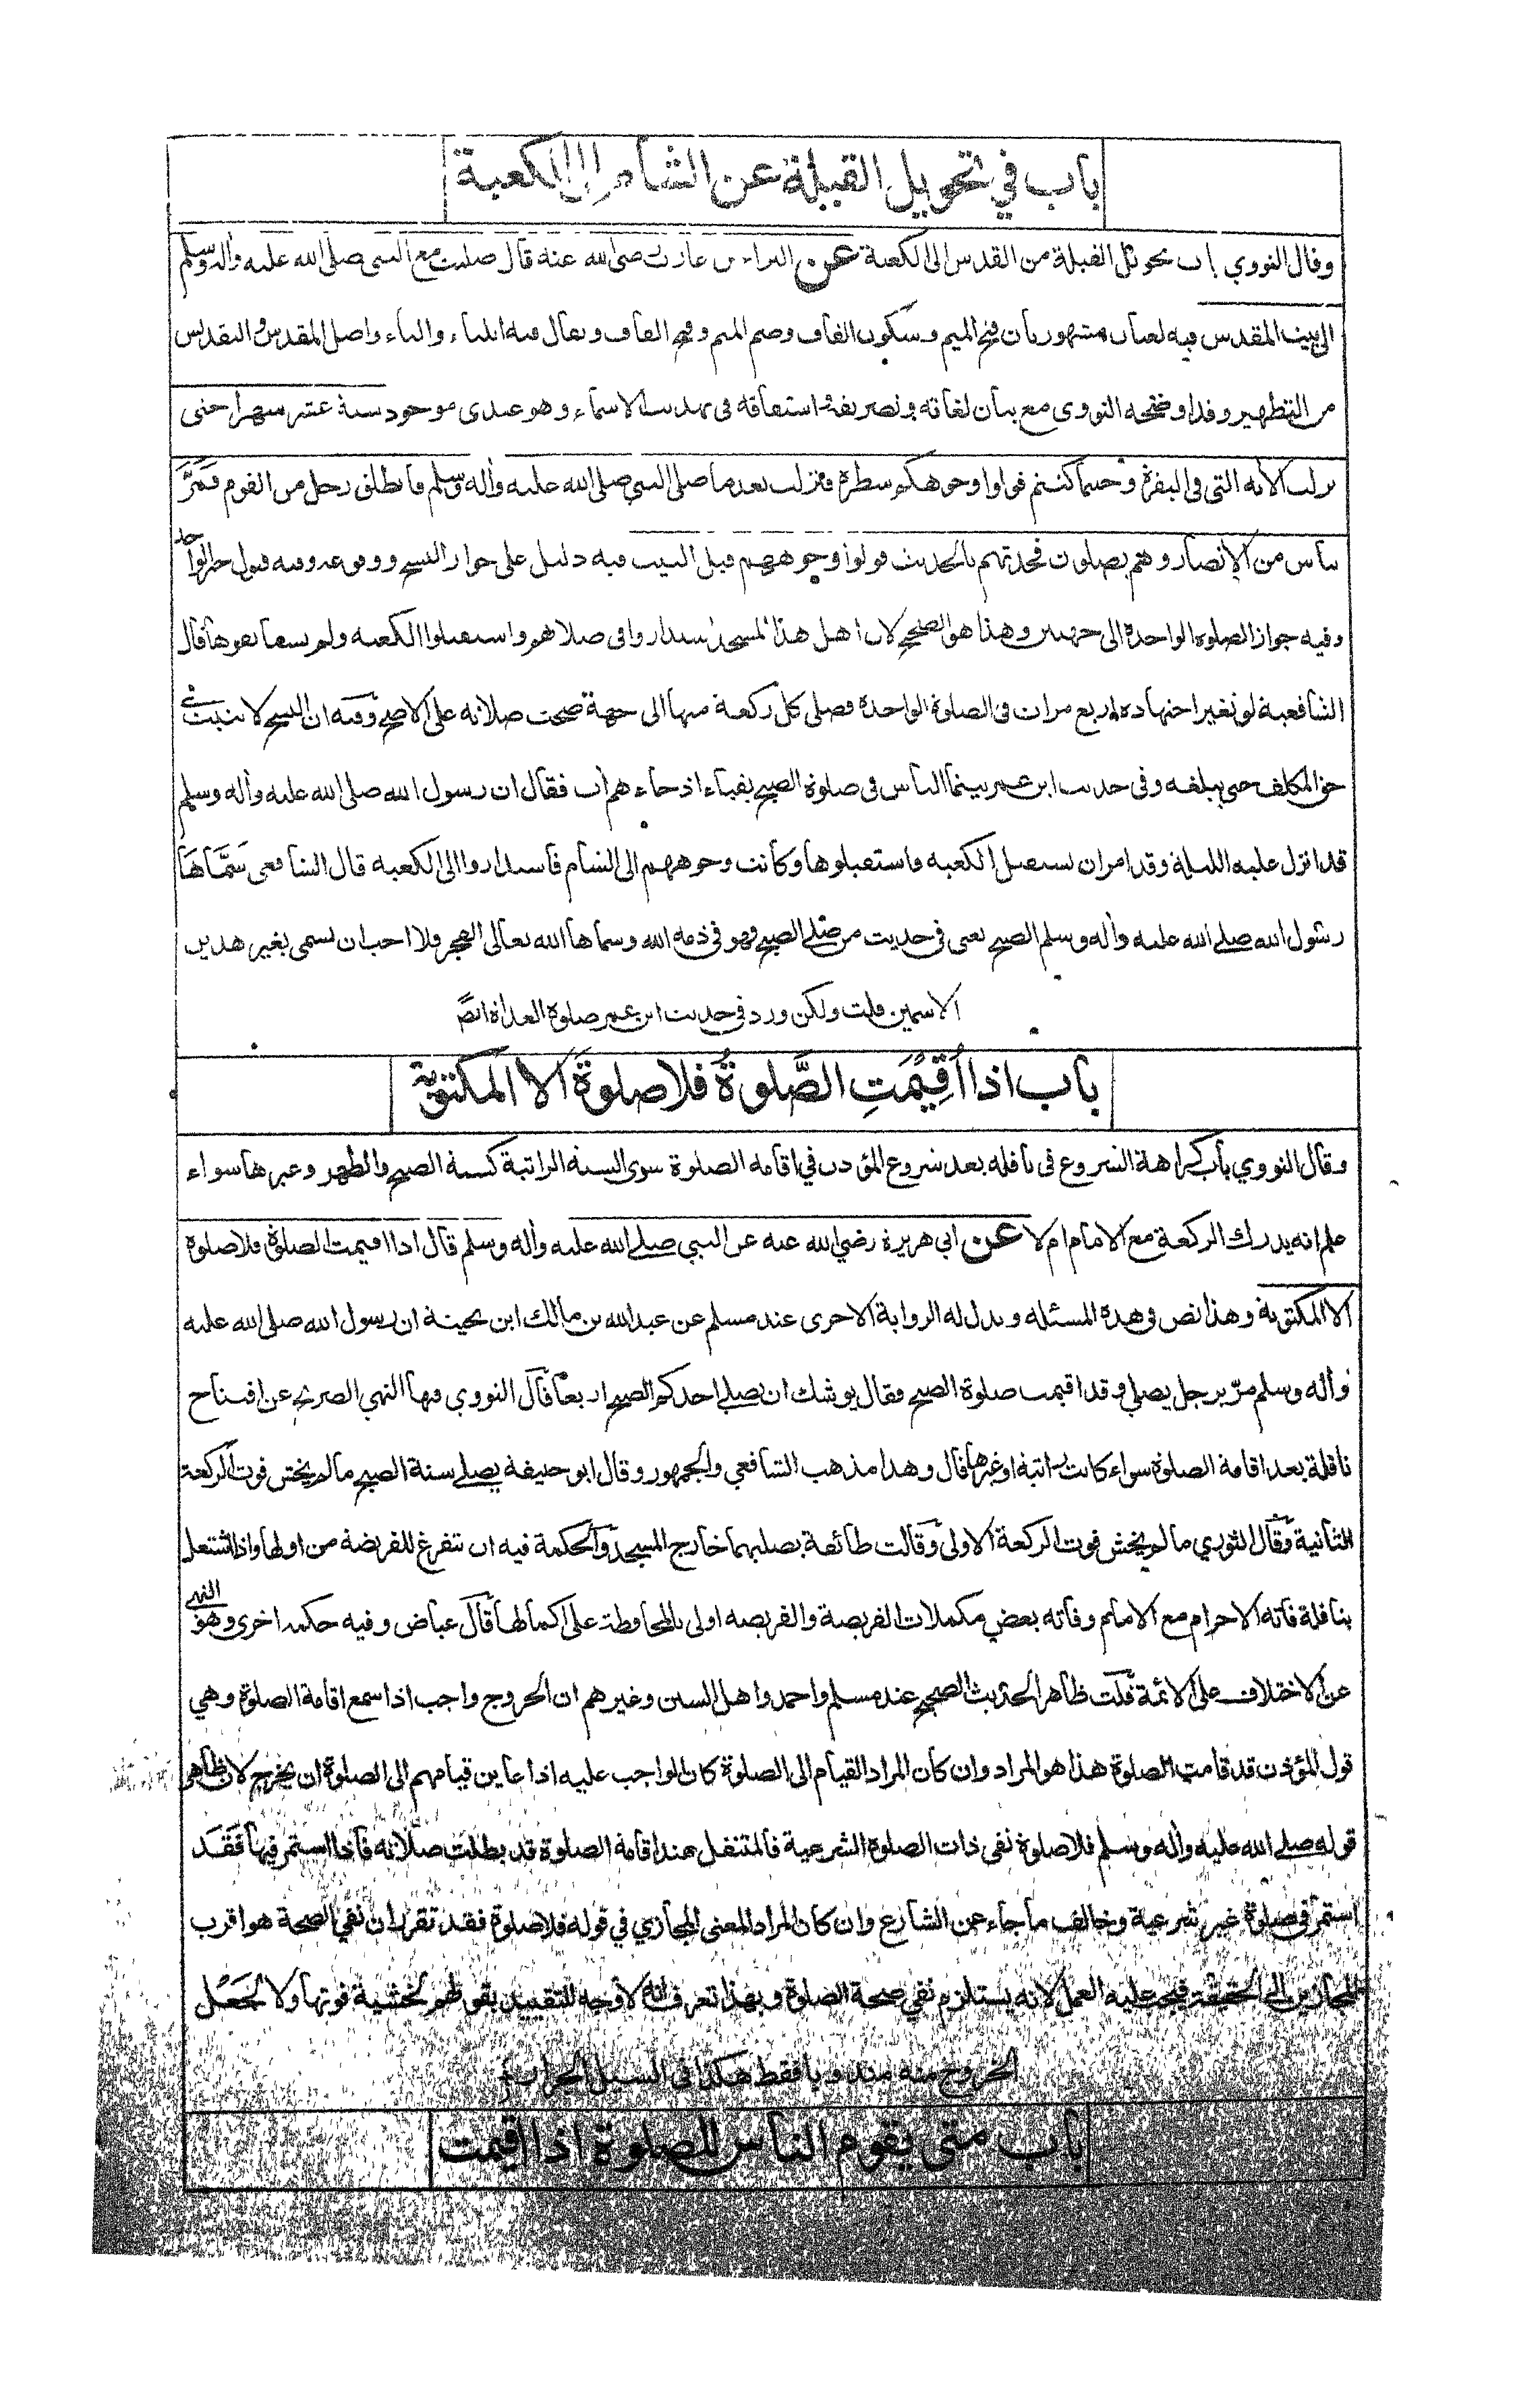 باب في تحويل القبلة عن الشام إلى الكعبة
وقال النووي باب تحويل القبلة من القدس الى الكعبة عن البراء بن عازب رضي الله عنه قال صليت مع النبي صلى الله عليه وأله وسلم
الى بيت المقدس فيه لغتان مشهورتان فتح الميم وسكون القاف وضم الميم وفتح القاف ويقال فيه ايلياء والياء واصل المقدس والتقديس
من التطهير وقد اوضحه النووي مع بيان لغاته وتصريفه واشتقاقه في تهذيب الاسماء وهو عندي موجود ستة عشر شهرا حتى
نزلت الأية التي في البقرة وحيثما كنتم فولوا وجوهكم شطره فنزلت بعد ما صلى النبي صلى الله عليه وأله وسلم فانطلق رجل من القوم فمَرَّ
بناس من الأنصار وهم يصلون فحدثهم بالحديث فولوا وجوههم قبل البيت فيه دليل على جواز النسخ ووقوعه وفيه قبول خبر الواحد
وفيه جواز الصلوة الواحدة الى جهتين وهذا هو الصحيح لان اهل هذا المسجد استداروا في صلاتهم واستقبلوا الكعبة ولم يستأنفوها قال
الشافعية لو تغير اجتهاده اربع مرات في الصلوة الواحدة فصلى كل ركعة منها الى جهة صحت صلاته على الاصح وفيه ان النسخ لا يثبت في
حق المكلف حتى يبلغه وفي حديث ابن عمر بينما الناس في صلوة الصبح بقباء اذ جاءهم أت فقال ان رسول الله صلى الله عليه وأله وسلم
قد انزل عليه الليلة وقد امر ان يستقبل الكعبة فاستقبلوها وكانت وجوههم الى الشام فاستداروا الى الكعبة قال الشافعي سَمَّاهَا
رسول الله صلے الله عليه وأله وسلم الصبح يعنى في حديث من صلے الصبح فهو في ذمة الله وسماها الله تعالى الفجر فلا احب ان تسمى بغير هذين
الاسمين قلت ولكن ورد في حديث ابن عمر صلوة الغداة ايضًا
باب اذا أُقِيْمَتِ الصَّلوةُ فلا صلوةَ الا المكتوبة
وقال النووي باب كراهة الشروع في نافلة بعد شروع المؤذن في اقامة الصلوة سوى السنة الراتبة كسنة الصبح والظهر وغيرها سواء
علم انه يدرك الركعة مع الامام ام لا عن ابي هريرة رضي الله عنه عن النبي صلے الله عليه وأله وسلم قال اذا اقيمت الصلوة فلا صلوة
الا المكتوبة وهذا نص في هذه المسئلة ويدل له الرواية الاخرى عند مسلم عن عبد الله بن مالك ابن بحينة ان رسول الله صلى الله عليه
وأله وسلم مرّ برجل يصلي وقد اقيمت صلوة الصبح فقال يوشك ان يصلے احدكم الصبح اربعا قال النووي فيها النهي الصريح عن افتتاح
نافلة بعد اقامة الصلوة سواء كانت راتبة او غيرها قال وهذا مذهب الشافعي والجمهور وقال ابو حنيفة يصلے سنة الصبح ما لم يخش فوت الركعة
الثانية وقال الثوري ما لم يخش فوت الركعة الاولى وقالت طائفة يصليهما خارج المسجد والحكمة فيه ان تتفرغ للفريضة من اولها واذا اشتغل
بنافلة فاته الاحرام مع الامام وفاته بعض مكملات الفريضة والفريضة اولى بالمحافظة على اكمالها قال عياض وفيه حكمة اخرى وهو النهي
عن الاختلاف على الائمة قلت ظاهر الحديث الصحيح عند مسلم واحمد واهل السنن وغيرهم ان الخروج واجب اذا سمع اقامة الصلوة وهي
قول المؤذن قد قامت الصلوة هذا هو المراد وان كان المراد القيام الى الصلوة كان الواجب عليه اذا عاين قيامهم الى الصلوة ان يخرج لان ظاهر
قوله صلے الله عليه وأله وسلم فلا صلوة نفى ذات الصلوة الشرعية فالمتنفل عند اقامة الصلوة قد بطلت صلاته فاذا استمر فيها فَقَد
استمر في صلوة غير شرعية وخالف ما جاء عن الشارع وان كان المراد المعنى المجازي في قوله فلا صلوة فقد تقرر ان نفي الصحة هو اقرب
المجازين الى الحقيقة فيجب عليه العمل لانه يستلزم نفي صحة الصلوة وبهذا تعرف انه لا وجه للتقييد بقولهم لخشية فوتها ولا لجَعْل
الخروج منه مندوبا فقط هكذا في السيل الجرار
باب متى يقوم الناس للصلوة اذا اقيمت